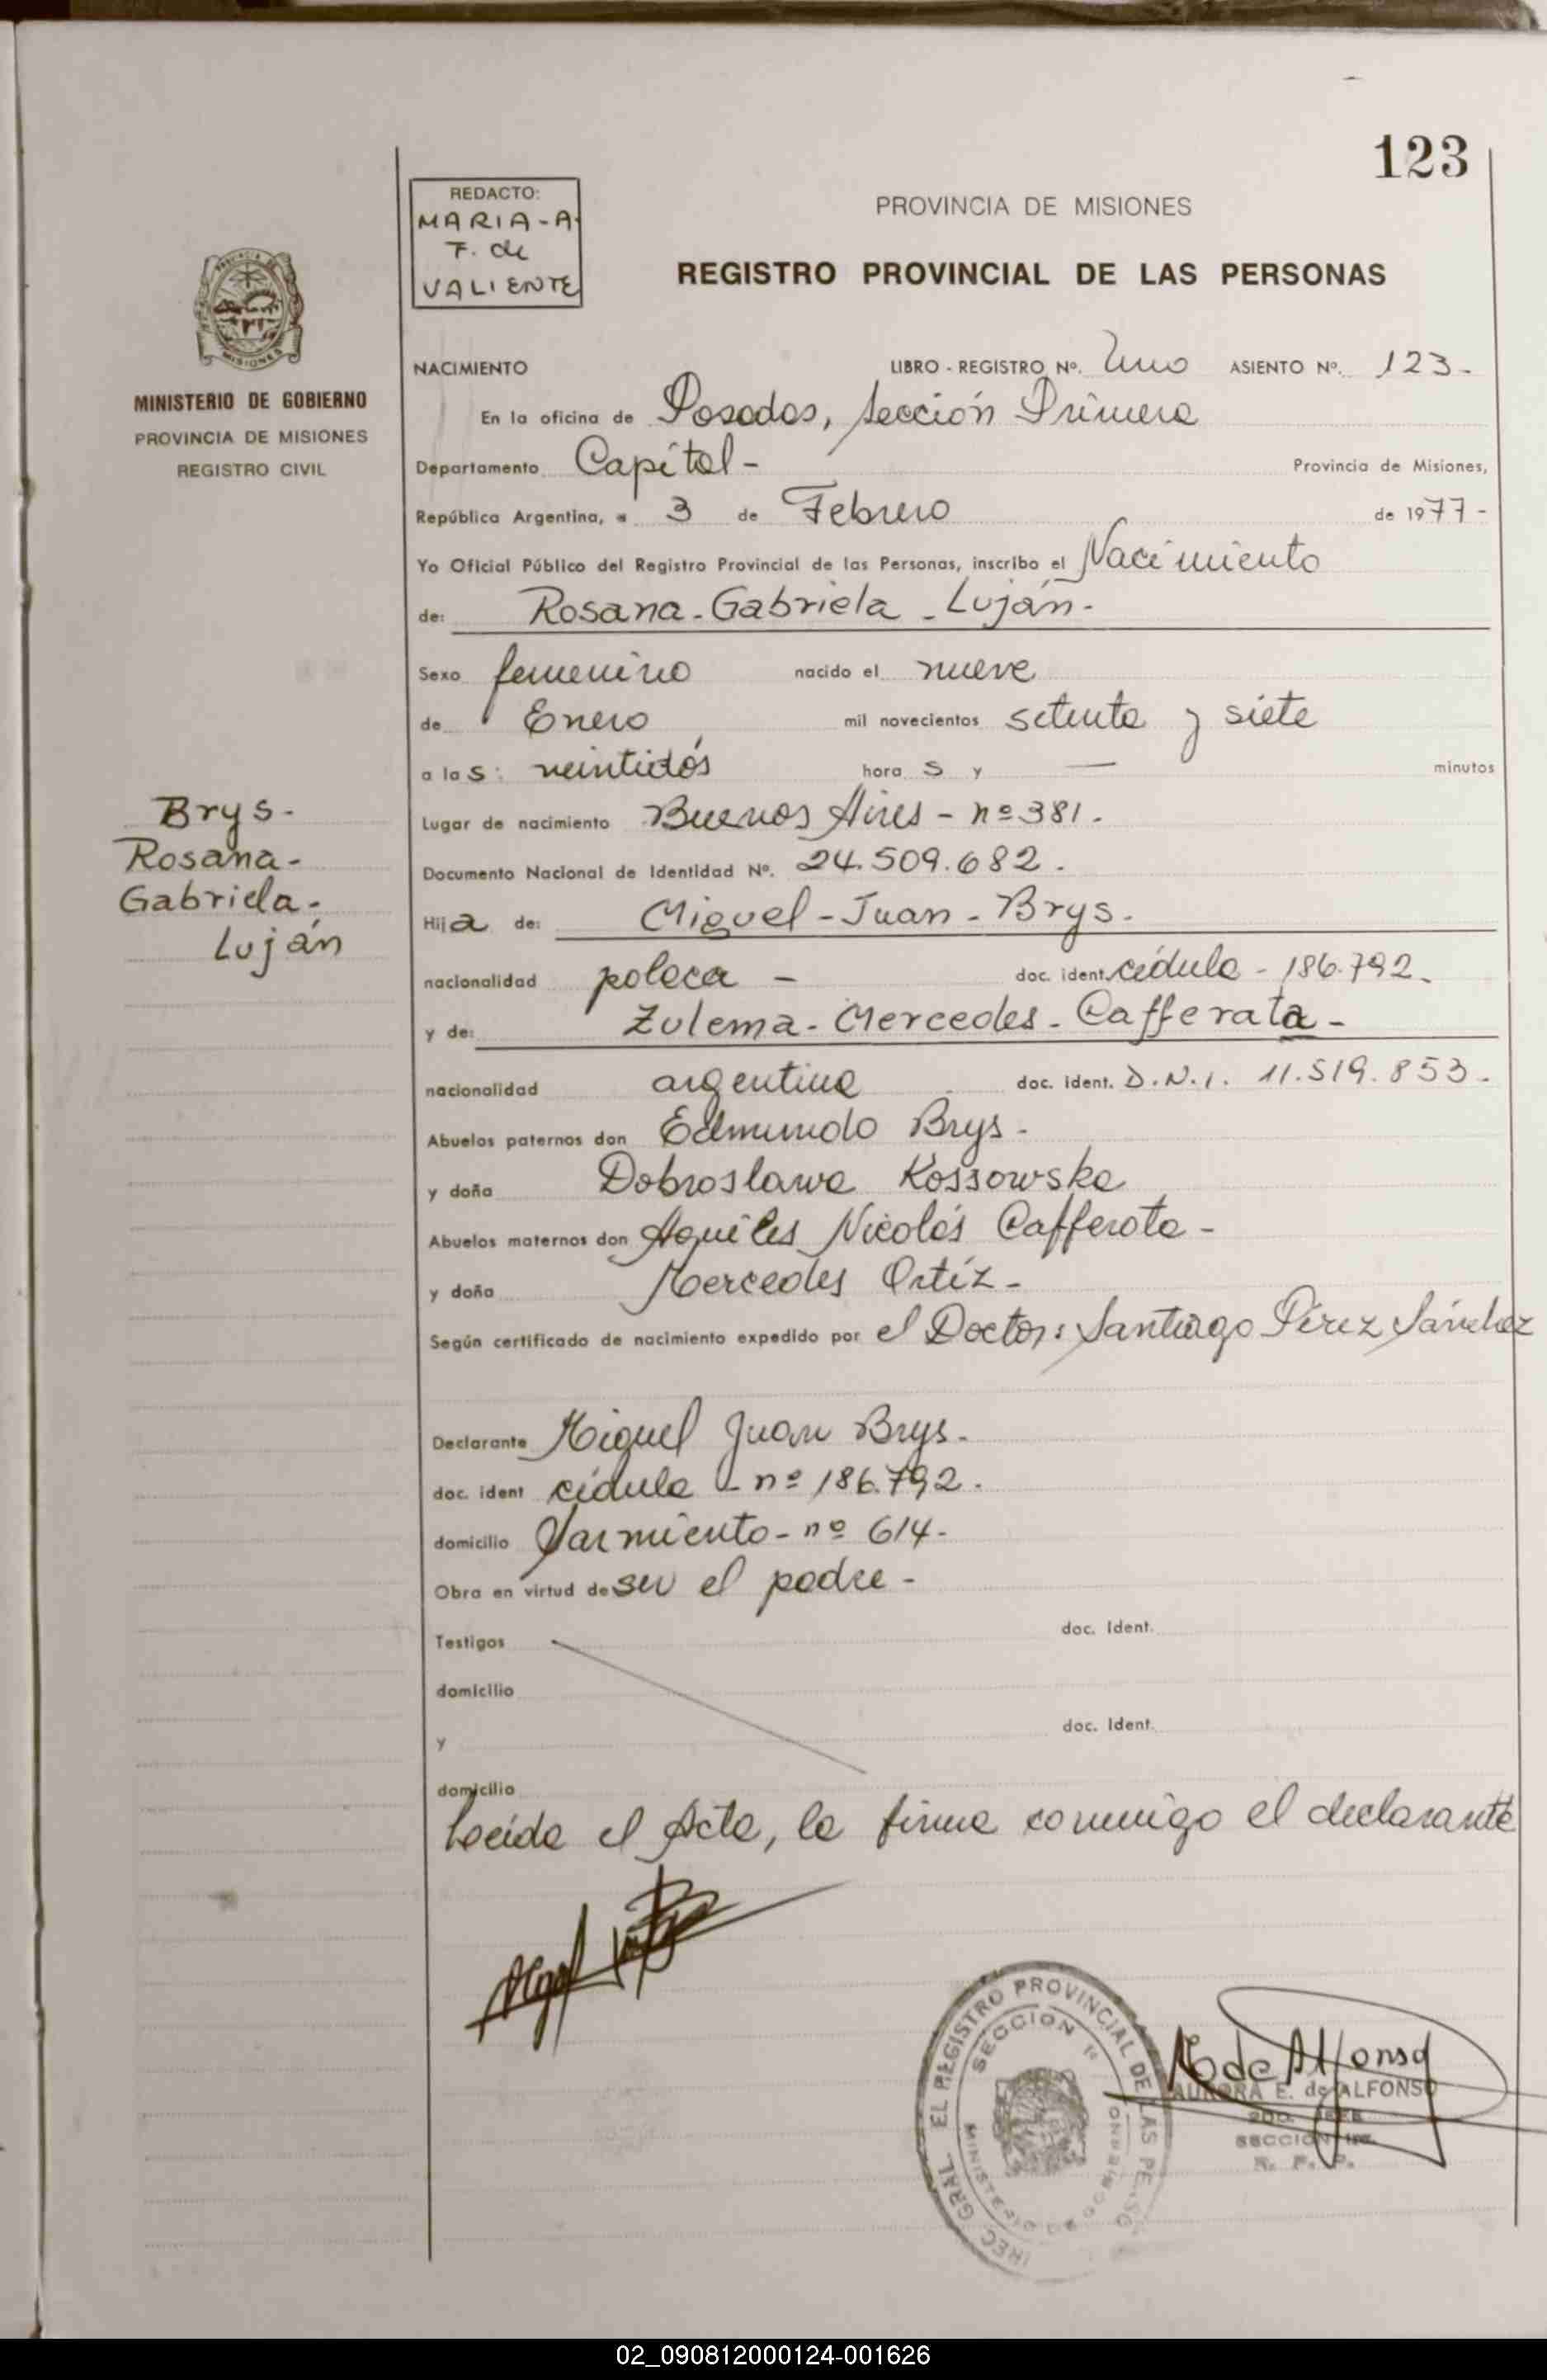 123
REDACTO:
MARIA-A.
F. de
VALIENTE
PROVINCIA DE MISIONES
REGISTRO PROVINCIAL DE LAS PERSONAS
MISIONES
MINISTERIO DE GOBIERNO
PROVINCIA DE MISIONES
REGISTRO CIVIL
NACIMIENTO LIBRO - REGISTRO Nº. Uno ASIENTO Nº. 123-
En la oficina de Posadas, Sección Primera
Departamento Capital - Provincia de Misiones,
República Argentina, a 3 de Febrero de 1977-
Yo Oficial Público del Registro Provincial de las Personas, inscribo el Nacimiento
de: Rosana-Gabriela-Luján-
Sexo femenino nacido el nueve
de Enero mil novecientos setenta y siete
a las: veintidós horas y — minutos
Lugar de nacimiento Buenos Aires - nº 381.
Documento Nacional de Identidad Nº. 24.509.682.
Hija de: Miguel-Juan-Brys.
nacionalidad polaca - doc. ident. cédula - 186.792.
y de: Zulema-Mercedes-Cafferata-
nacionalidad argentina doc. ident. D.N.I. 11.519.853-
Abuelos paternos don Edmundo Brys-
y doña Dobroslawa Kossowska
Abuelos maternos don Aquiles Nicolás Cafferata-
y doña Mercedes Ortíz-
Según certificado de nacimiento expedido por el Doctor: Santiago Pérez Sánchez
Brys-
Rosana-
Gabriela-
Luján
Declarante Miguel Juan Brys-
doc. ident cédula - nº 186.792.
domicilio Sarmiento - nº 614-
Obra en virtud de ser el padre-
Testigos doc. Ident.
domicilio
y doc. Ident.
domicilio
Leída el Acta, la firma conmigo el declarante
GRAL. EL REGISTRO PROVINCIAL DE LAS PE
SECCION 1ª
MINISTERIO DE GOBIERNO
M de Alfonso
AURORA E. de ALFONSO
SECCION 1ra.
R. P. P.
02_090812000124-001626